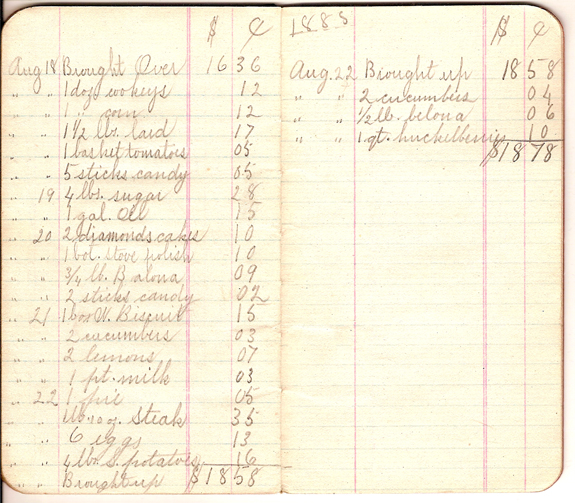 $ ¢
Aug 18 Brought Over 16 36
" " 1 doz cookeys 12
" " 1 " corn 12
" " 1 1/2 lbs. laid 17
" " 1 basket tomatoes 05
" " 5 sticks candy 05
" 19 4 lbs. sugar 28
" " 1 gal. Oil 15
" 20 2 diamonds cakes 10
" " 1 bot. Stove polish 10
" " 3/4 lb. B alona 09
" " 2 sticks candy 02
" 21 1 box W. Biscuit 15
" " 2 cucumbers 03
" " 2 lemons 07
" " 1 pt. milk 03
" 22 1 pie 05
" " 1 lb. 10 oz. Steak 35
" " 6 eggs 13
" " 4 lbs S. potatoes 16
" " Brought up $18 58
188
$ ¢
Aug. 22 Brought up 18 58
" " 2 cucumbers 04
" " 1/2 lb. belona 06
" " 1 qt. huckelberries 10
$18 78